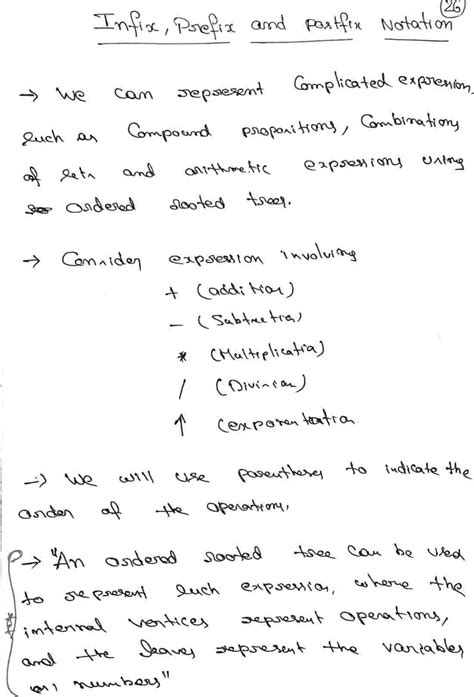 26
Infix, Prefix and Postfix Notation
→ We can represent Complicated expression,
such as Compound propositions, Combinations
of sets and arithmetic expressions using
ordered rooted trees.
→ Consider expression involving
+ (addition)
- (Subtraction)
* (Multiplication)
/ (Division)
↑ (exponentation
→ We will use parentheses to indicate the
order of the operations.
→ "An ordered rooted tree can be used
to represent such expression, where the
internal vertices represent operations,
and the leaves represent the variables
or numbers"